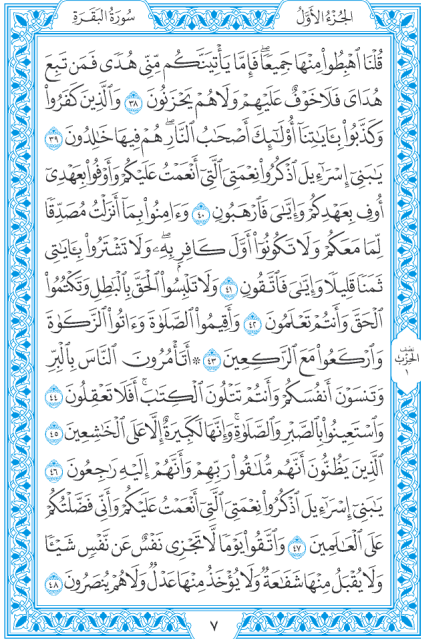 الجُزْءُ الأَوَّلُ
سُورَةُ البَقَرَةِ
قُلْنَا ٱهْبِطُوا۟ مِنْهَا جَمِيعًۭا ۖ فَإِمَّا يَأْتِيَنَّكُم مِّنِّى هُدًۭى فَمَن تَبِعَ
هُدَاىَ فَلَا خَوْفٌ عَلَيْهِمْ وَلَا هُمْ يَحْزَنُونَ ٣٨ وَٱلَّذِينَ كَفَرُوا۟
وَكَذَّبُوا۟ بِـَٔايَـٰتِنَآ أُو۟لَـٰٓئِكَ أَصْحَـٰبُ ٱلنَّارِ ۖ هُمْ فِيهَا خَـٰلِدُونَ ٣٩
يَـٰبَنِىٓ إِسْرَٰٓءِيلَ ٱذْكُرُوا۟ نِعْمَتِىَ ٱلَّتِىٓ أَنْعَمْتُ عَلَيْكُمْ وَأَوْفُوا۟ بِعَهْدِىٓ
أُوفِ بِعَهْدِكُمْ وَإِيَّـٰىَ فَٱرْهَبُونِ ٤٠ وَءَامِنُوا۟ بِمَآ أَنزَلْتُ مُصَدِّقًۭا
لِّمَا مَعَكُمْ وَلَا تَكُونُوٓا۟ أَوَّلَ كَافِرٍۭ بِهِۦ ۖ وَلَا تَشْتَرُوا۟ بِـَٔايَـٰتِى
ثَمَنًۭا قَلِيلًۭا وَإِيَّـٰىَ فَٱتَّقُونِ ٤١ وَلَا تَلْبِسُوا۟ ٱلْحَقَّ بِٱلْبَـٰطِلِ وَتَكْتُمُوا۟
ٱلْحَقَّ وَأَنتُمْ تَعْلَمُونَ ٤٢ وَأَقِيمُوا۟ ٱلصَّلَوٰةَ وَءَاتُوا۟ ٱلزَّكَوٰةَ
وَٱرْكَعُوا۟ مَعَ ٱلرَّٰكِعِينَ ٤٣ ۞ أَتَأْمُرُونَ ٱلنَّاسَ بِٱلْبِرِّ
وَتَنسَوْنَ أَنفُسَكُمْ وَأَنتُمْ تَتْلُونَ ٱلْكِتَـٰبَ ۚ أَفَلَا تَعْقِلُونَ ٤٤
وَٱسْتَعِينُوا۟ بِٱلصَّبْرِ وَٱلصَّلَوٰةِ ۚ وَإِنَّهَا لَكَبِيرَةٌ إِلَّا عَلَى ٱلْخَـٰشِعِينَ ٤٥
ٱلَّذِينَ يَظُنُّونَ أَنَّهُم مُّلَـٰقُوا۟ رَبِّهِمْ وَأَنَّهُمْ إِلَيْهِ رَٰجِعُونَ ٤٦
يَـٰبَنِىٓ إِسْرَٰٓءِيلَ ٱذْكُرُوا۟ نِعْمَتِىَ ٱلَّتِىٓ أَنْعَمْتُ عَلَيْكُمْ وَأَنِّى فَضَّلْتُكُمْ
عَلَى ٱلْعَـٰلَمِينَ ٤٧ وَٱتَّقُوا۟ يَوْمًۭا لَّا تَجْزِى نَفْسٌ عَن نَّفْسٍۢ شَيْـًۭٔا
وَلَا يُقْبَلُ مِنْهَا شَفَـٰعَةٌۭ وَلَا يُؤْخَذُ مِنْهَا عَدْلٌۭ وَلَا هُمْ يُنصَرُونَ ٤٨
نِصْف
الحِزْب
١
٧